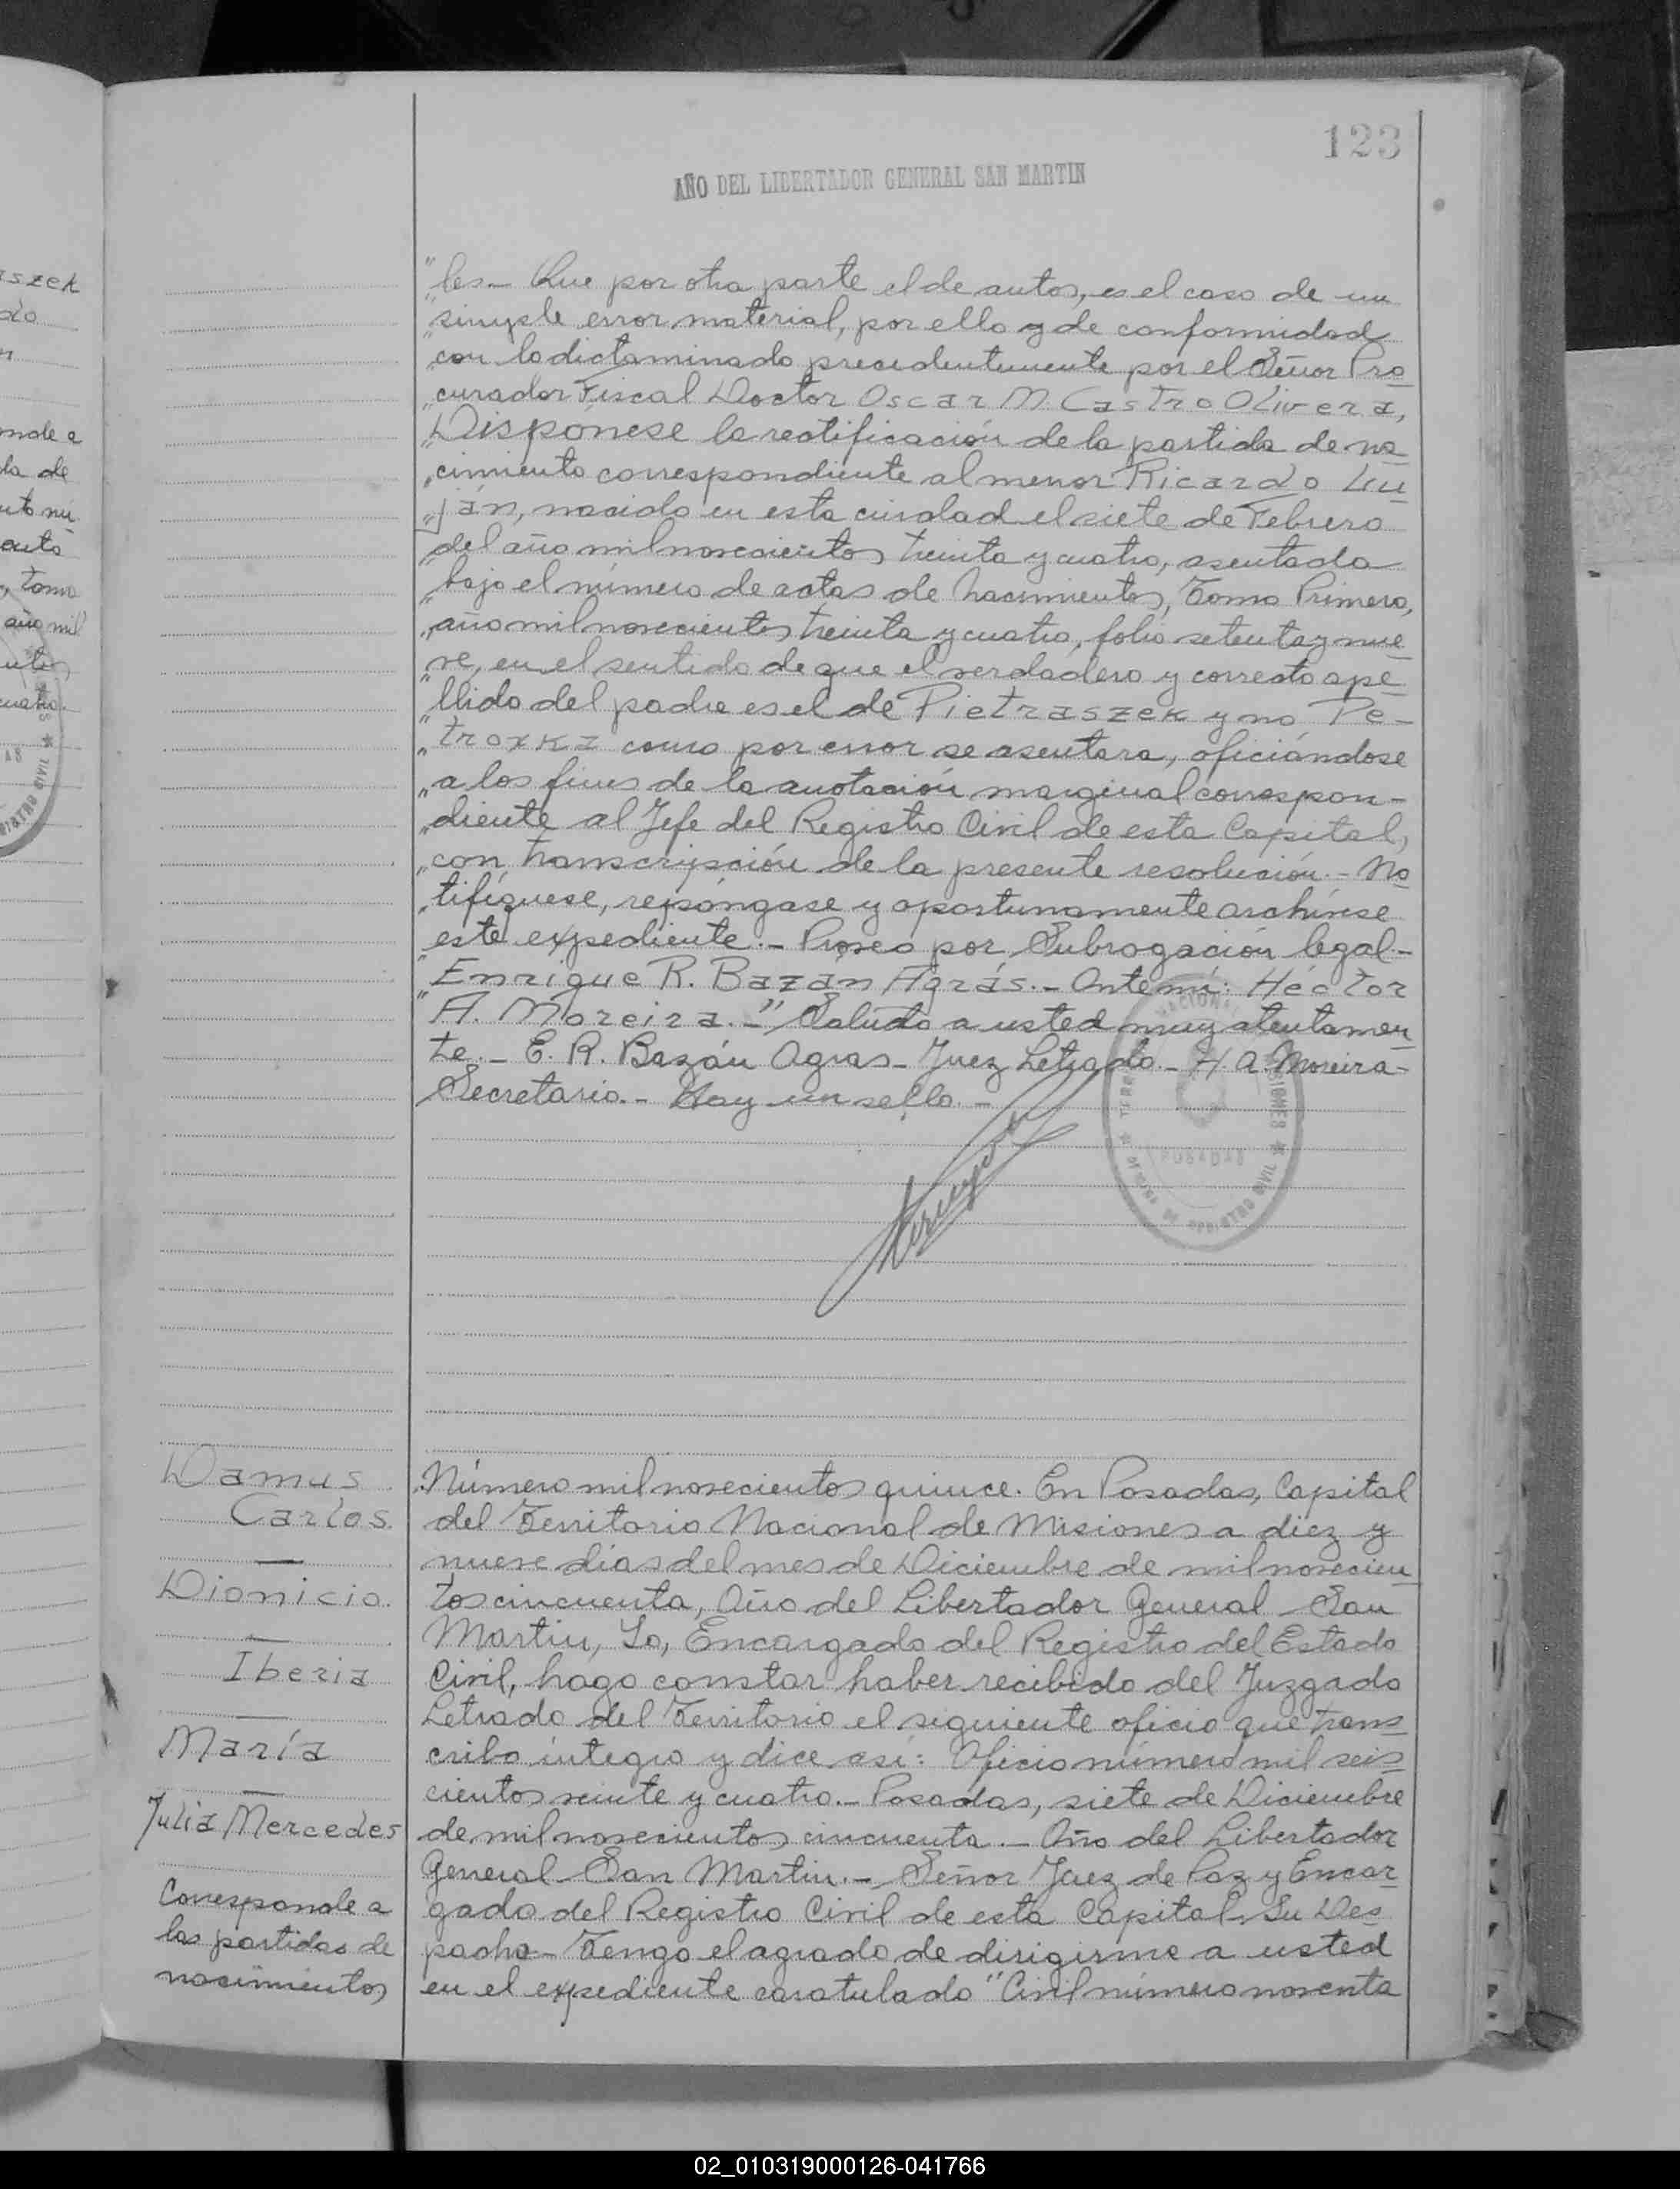 123
AÑO DEL LIBERTADOR GENERAL SAN MARTIN
"les.- Que por otra parte el de autos, es el caso de un
"simple error material, por ello y de conformidad
"con lo dictaminado precedentemente por el Señor Pro
"curador Fiscal Doctor Oscar M. Castro Olivera,
"Dispónese la rectificación de la partida de na
"cimiento correspondiente al menor Ricardo Lu
"ján, nacido en esta ciudad el siete de Febrero
"del año mil novecientos treinta y cuatro, asentada
"bajo el número de actas de nacimientos, Tomo Primero,
"año mil novecientos treinta y cuatro, folio setenta y nue
"ve, en el sentido de que el verdadero y correcto ape
"llido del padre es el de Pietraszek y no Pe-
"troxkz como por error se asentara, oficiándose
"a los fines de la anotación marginal correspon-
"diente al Jefe del Registro Civil de esta Capital,
"con transcripción de la presente resolución.- No
"tifíquese, repóngase y oportunamente archívese
"este expediente.- Proveo por Subrogación legal-
"Enrique R. Bazán Agrás.- Ante mí: Héctor
A. Moreira.-" Saludo a usted muy atentamen
te.- E. R. Bazán Agras- Juez Letrado.- H. A. Moreira-
Secretario.- Hay un sello.-
POSADAS
REGISTRO CIVIL
Damus
Carlos.
Dionicio.
Iberia
María
Julia Mercedes
Corresponde a
las partidas de
nacimientos
Número mil novecientos quince. En Posadas, Capital
del Territorio Nacional de Misiones a diez y
nueve días del mes de Diciembre de mil novecien
tos cincuenta, Año del Libertador General San
Martin, Yo, Encargado del Registro del Estado
Civil, hago constar haber recibido del Juzgado
Letrado del Territorio el siguiente oficio que trans
cribo íntegro y dice así: Oficio número mil seis
cientos veinte y cuatro.- Posadas, siete de Diciembre
de mil novecientos cincuenta.- Año del Libertador
General San Martin.- Señor Juez de Paz y Encar
gado del Registro Civil de esta Capital. Su Des
pacho- Tengo el agrado de dirigirme a usted
en el expediente caratulado "Civil número noventa
02_010319000126-041766